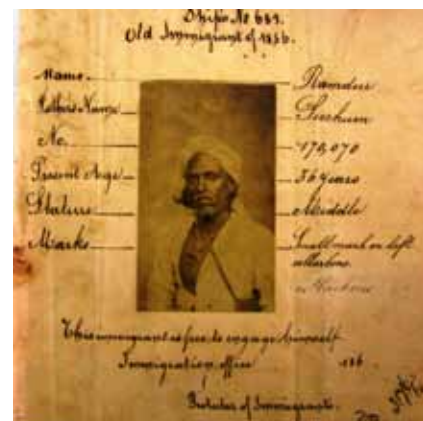 Ship's No 689.
Old Immigrant of 1856.
Name. Ramdin
Father's Name
No. 170,070
Present Age 36 years
Stature Middle
Marks Small mark on left
collarbone.
This immigrant is free to engage himself
Immigration office 186
Protector of Immigrants.